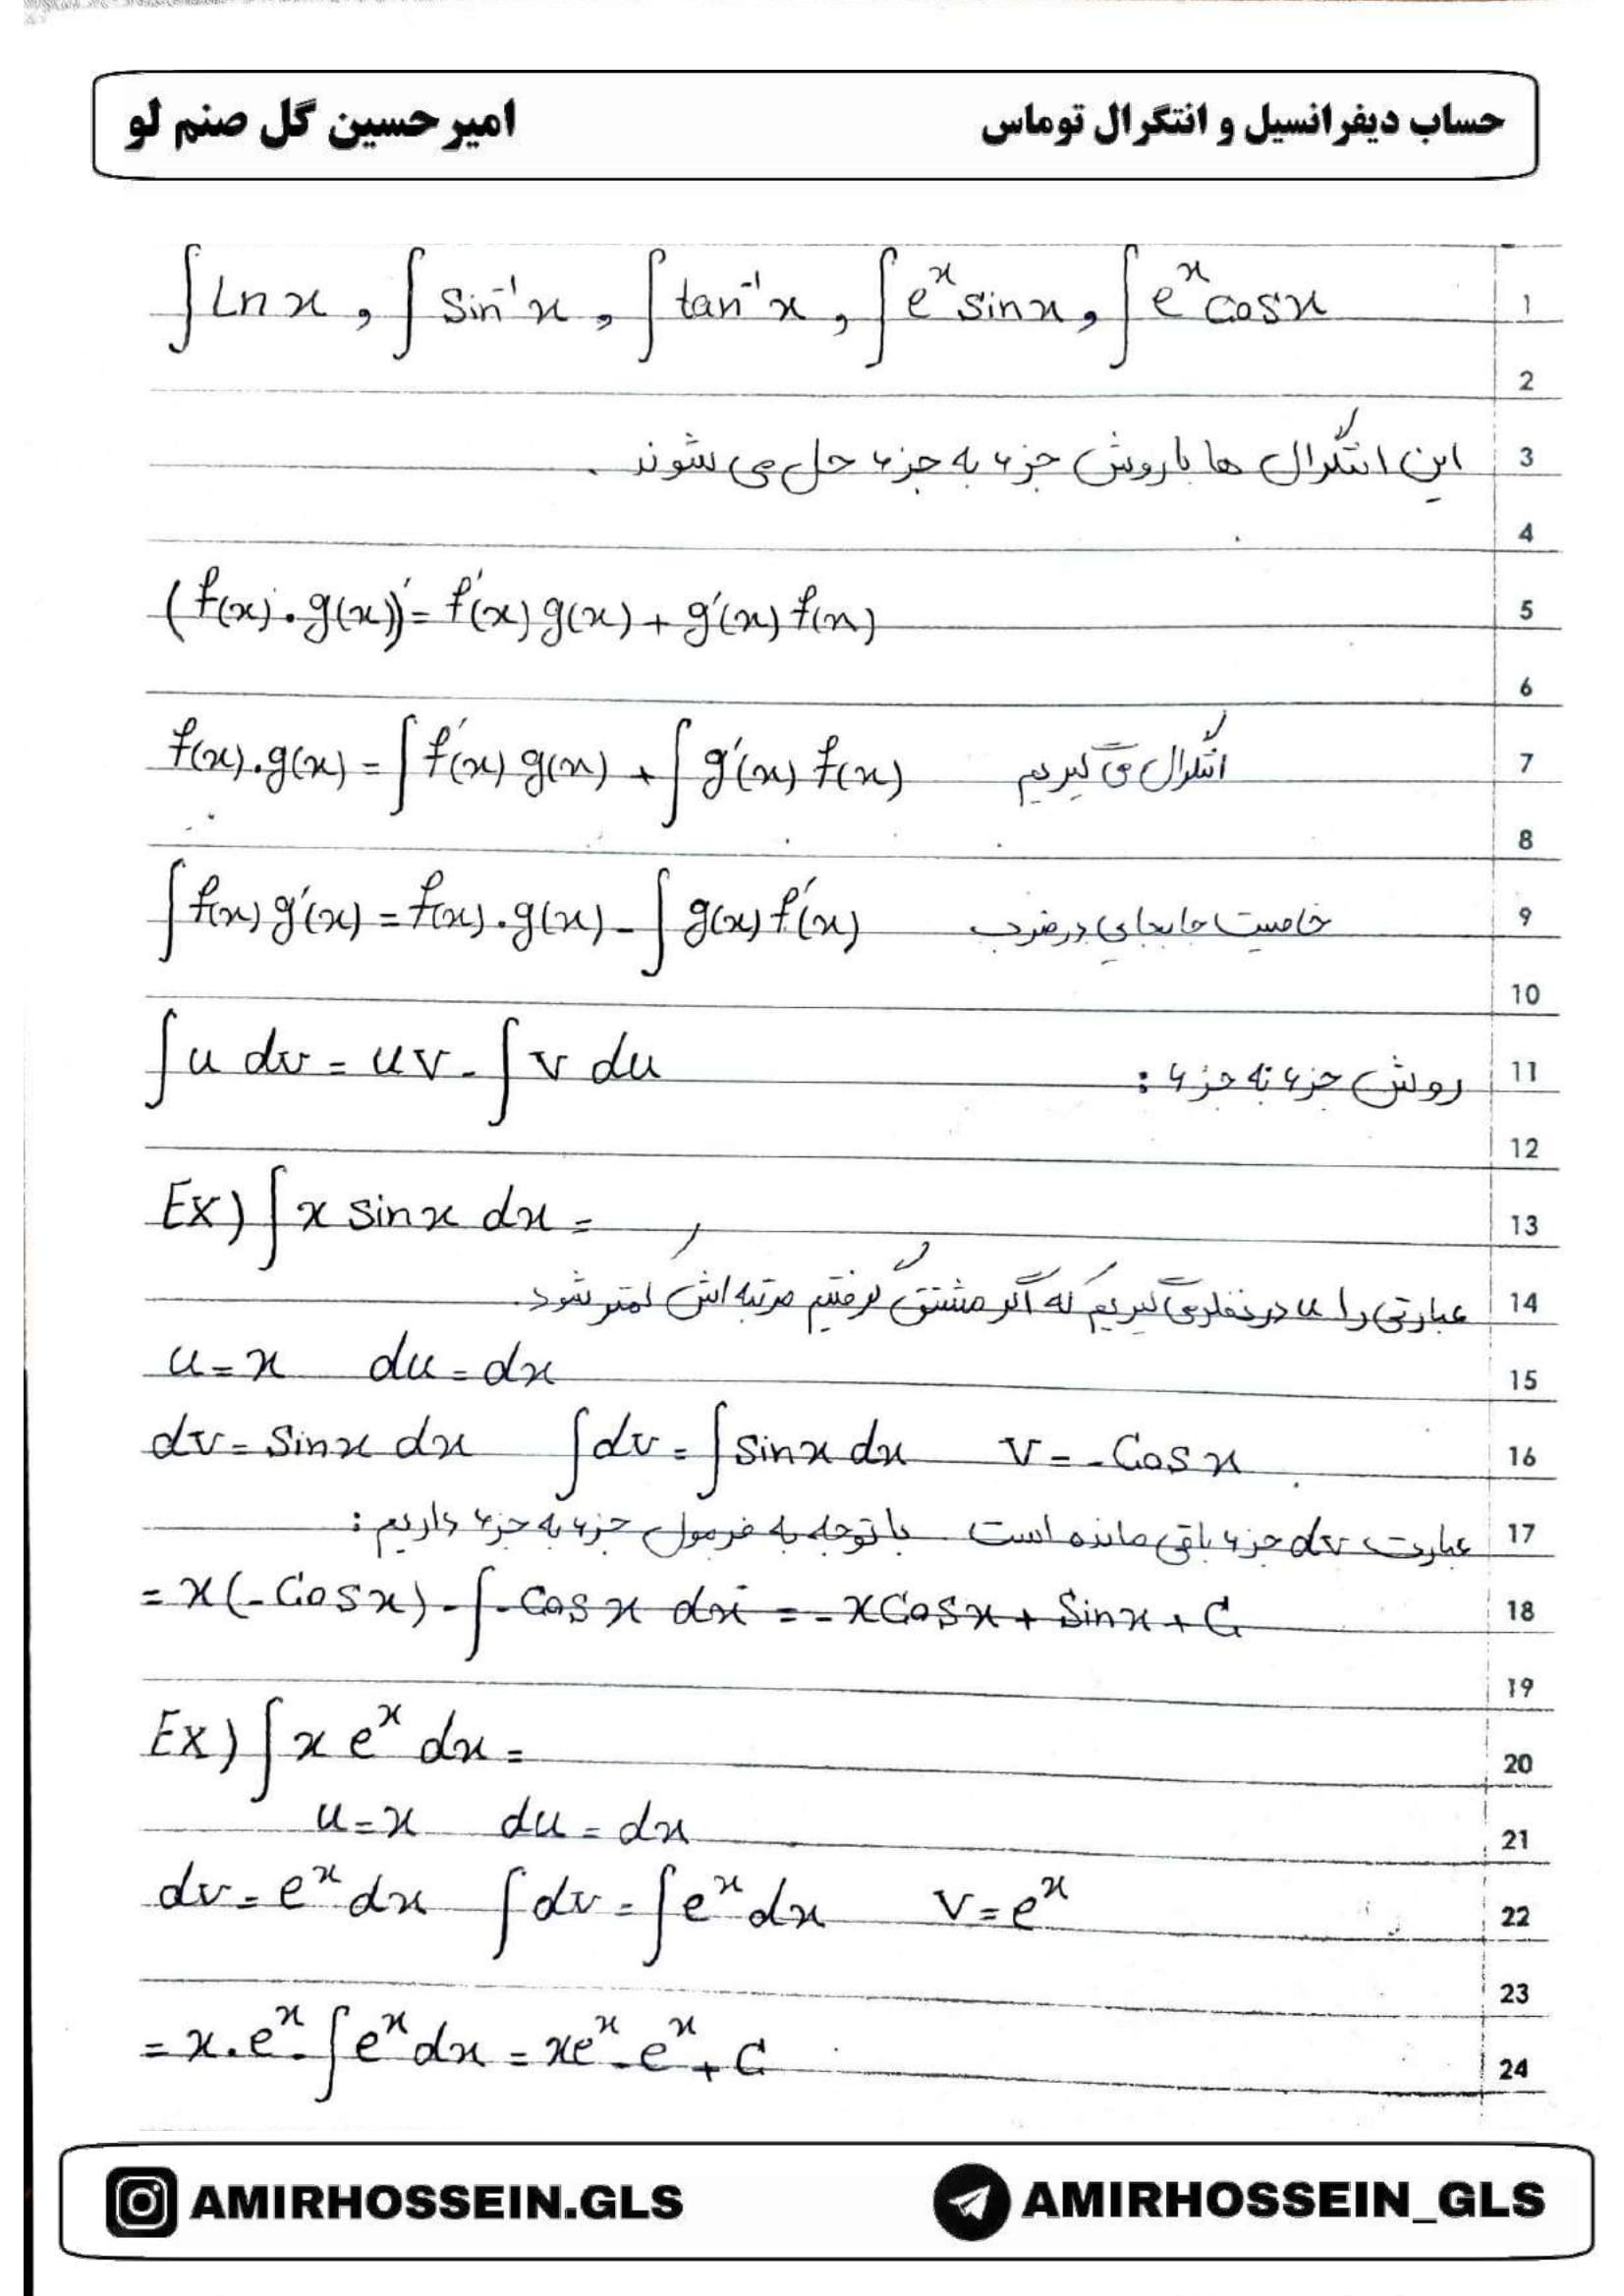 حساب دیفرانسیل و انتگرال توماس
امیرحسین گل صنم لو
1 ∫Ln x , ∫sin⁻¹x , ∫tan⁻¹x , ∫eˣ sinx , ∫eˣ cosx
2
3 این انتگرال ها با روش جزء به جزء حل می شوند .
4
5 (f(x).g(x))′ = f′(x) g(x) + g′(x) f(x)
6
7 f(x).g(x) = ∫f′(x) g(x) + ∫g′(x) f(x) انتگرال می گیریم
8
9 ∫f(x) g′(x) = f(x).g(x) - ∫g(x) f′(x) خاصیت جابجایی در ضرب
10
11 روش جزء به جزء : ∫u dv = uv - ∫v du
12
13 Ex) ∫x sinx dx =
14 عبارتی را u در نظر می گیریم که اگر مشتق گرفتیم مرتبه اش کمتر شود.
15 u = x du = dx
16 dv = sinx dx ∫dv = ∫sinx dx v = -Cosx
17 عبارت dv جزء باقی مانده است با توجه به فرمول جزء به جزء داریم :
18 = x(-Cosx) - ∫-Cosx dx = -xCosx + Sinx + C
19
20 Ex) ∫x eˣ dx =
21 u = x du = dx
22 dv = eˣ dx ∫dv = ∫eˣ dx v = eˣ
23
24 = x.eˣ - ∫eˣ dx = xeˣ - eˣ + C
AMIRHOSSEIN.GLS
AMIRHOSSEIN_GLS